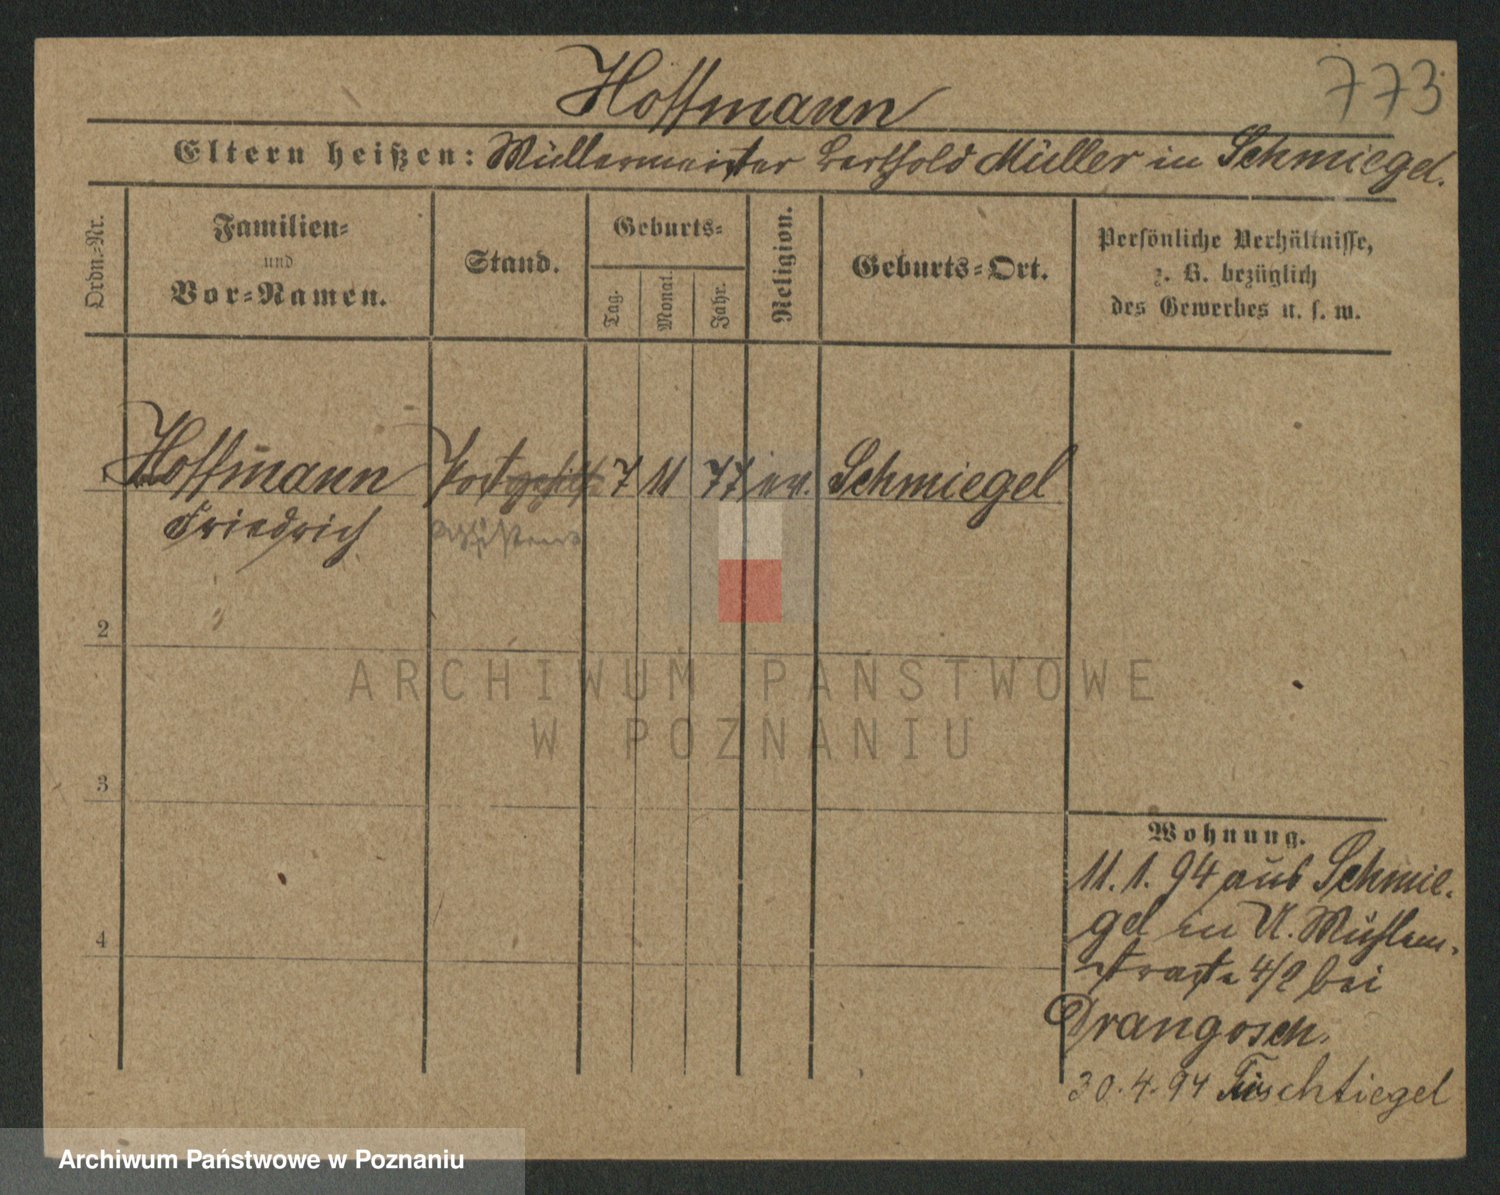 Hoffmann
773
Eltern heißen: Müllermeister Berthold Müller in Schmiegel.
Ordn.-Nr.
Familien-
und
Vor-Namen.
Stand.
Geburts-
Tag.
Monat.
Jahr.
Religion.
Geburts-Ort.
Persönliche Verhältnisse,
z. B. bezüglich
des Gewerbes u. s. w.
1 Hoffmann Postgehilfe 7 11 77 ev. Schmiegel
Friedrich
2
3
4
Wohnung.
11.1.94 aus Schmie-
gel in U. Mühlen-
straße 4/2 bei
Drangosch.
30.4.94 Tirschtiegel
ARCHIWUM PAŃSTWOWE
W POZNANIU
Archiwum Państwowe w Poznaniu